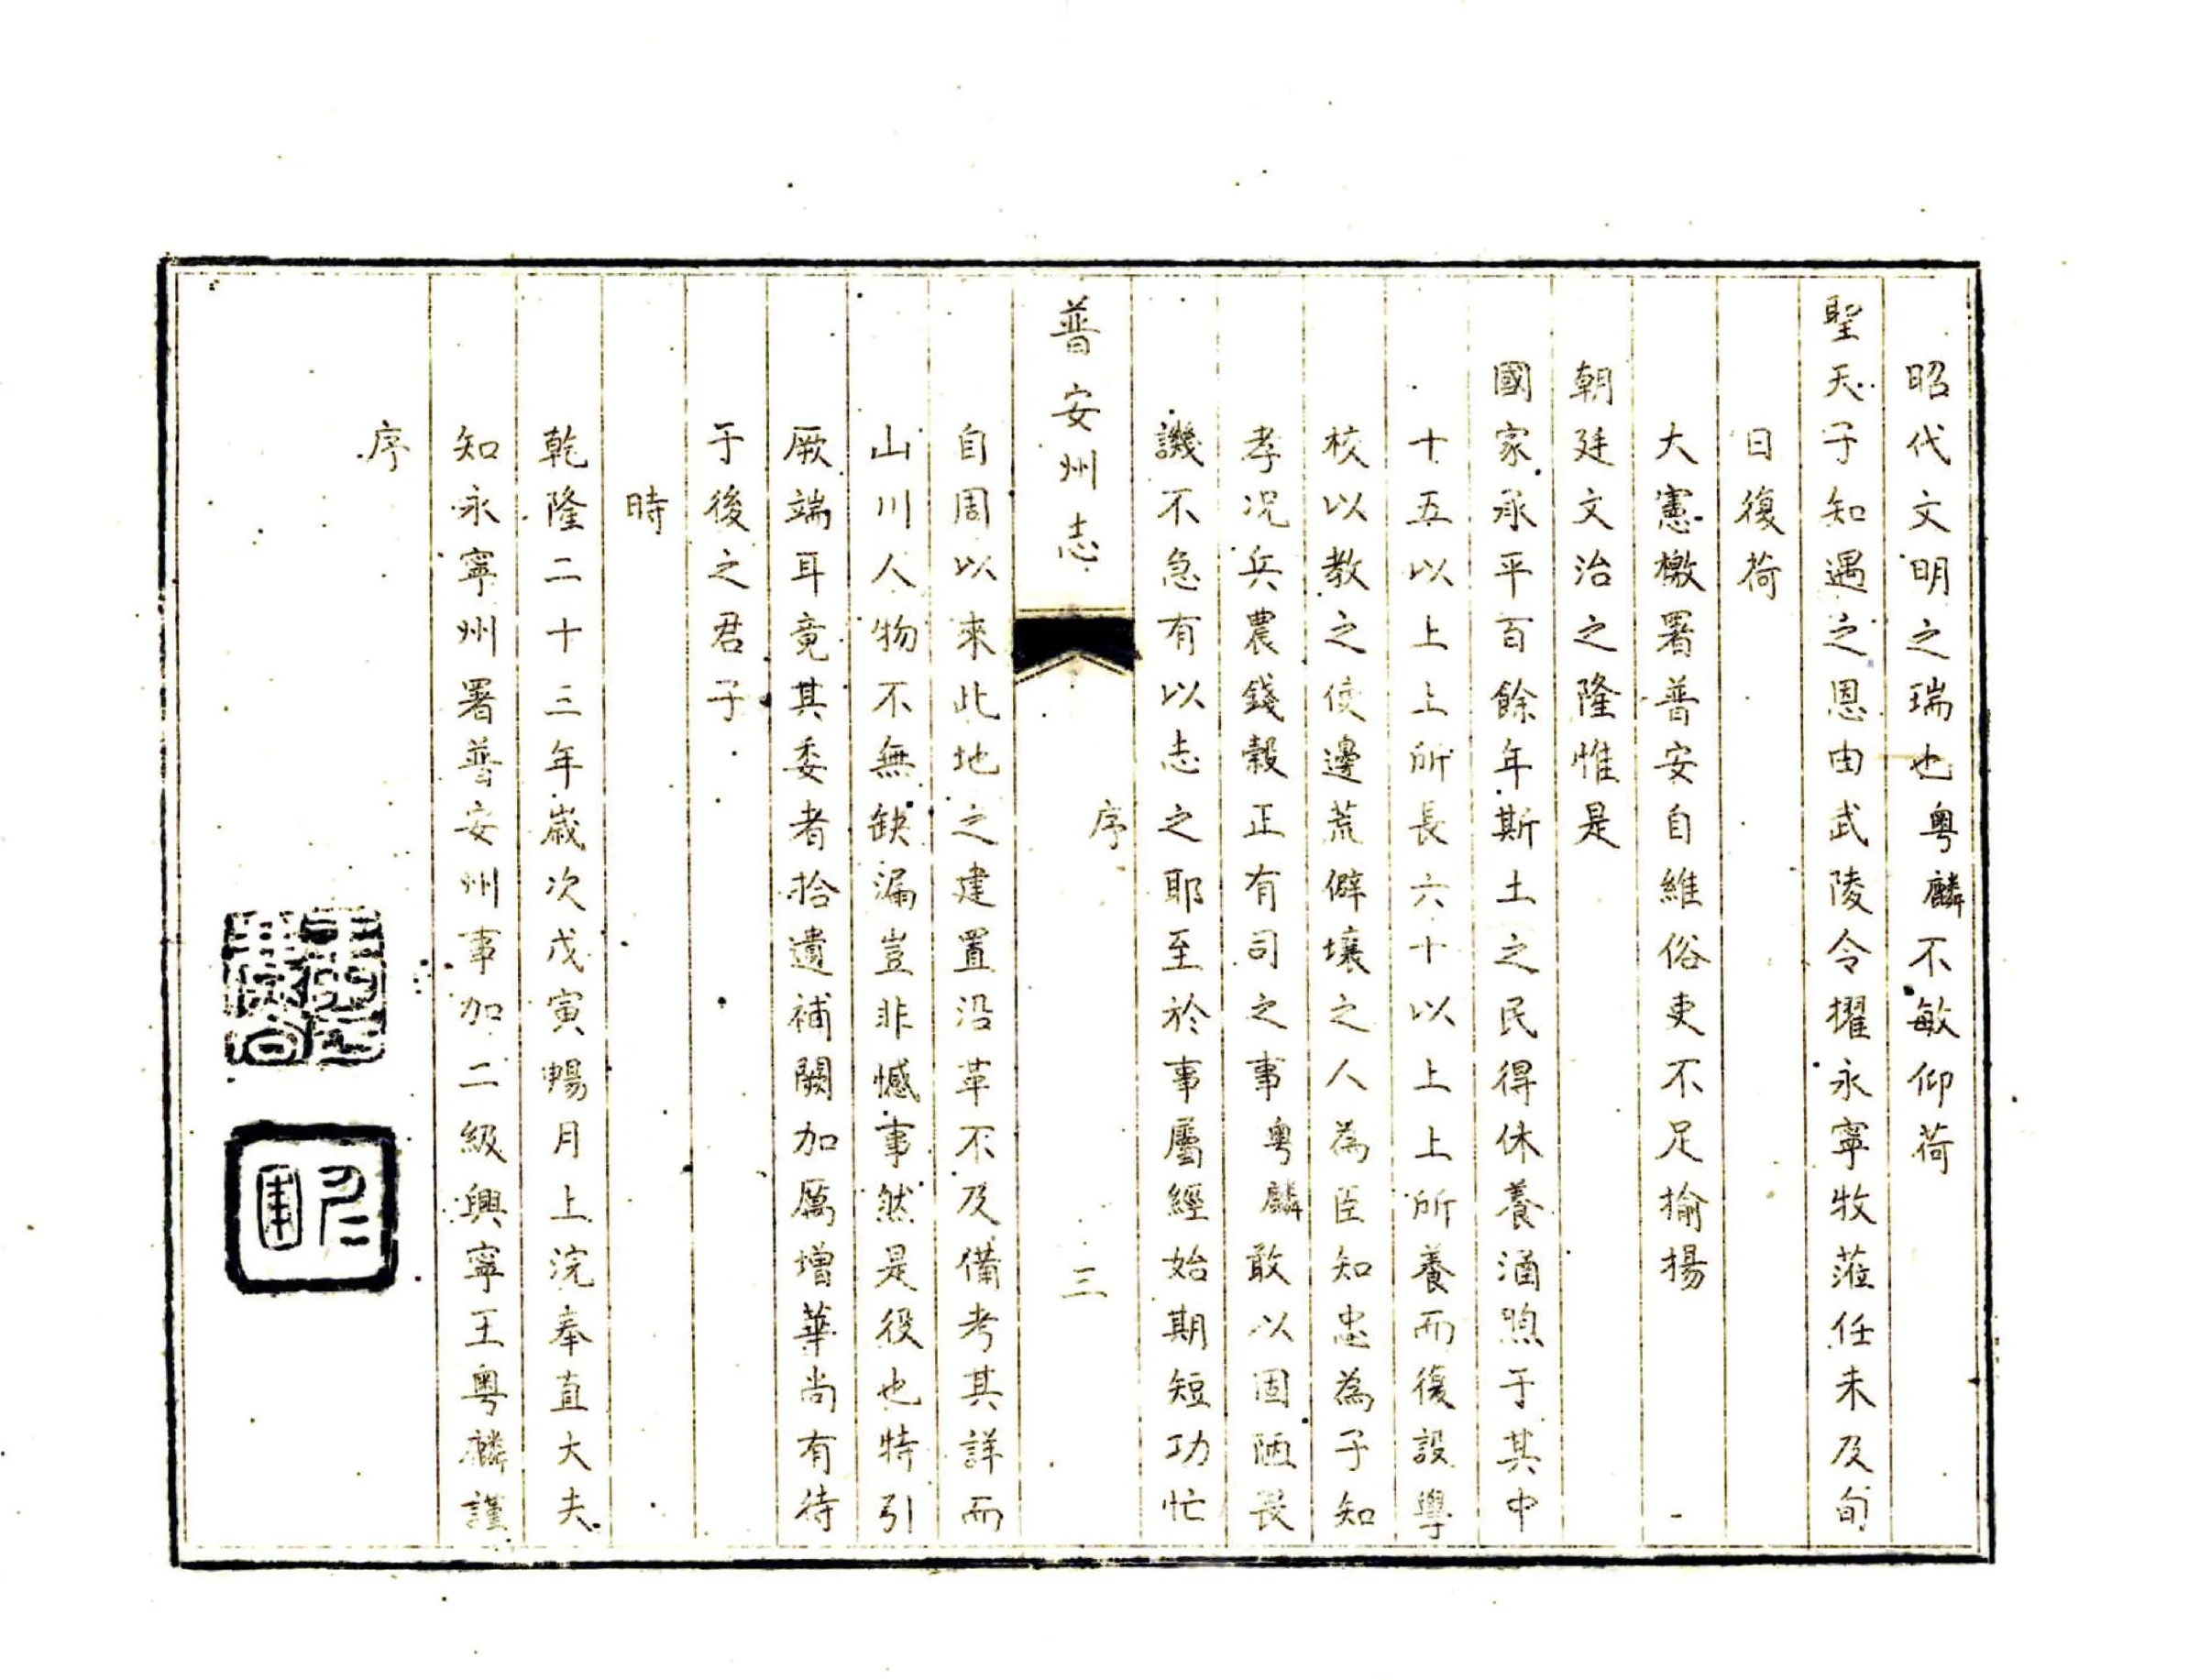 昭代文明之瑞也粵麟不敏仰荷
聖天子知遇之恩由武陵令擢永寧牧蒞任未及旬
日復荷
大憲檄署普安自維俗吏不足揄揚
朝廷文治之隆惟是
國家承平百餘年斯土之民得休養涵煦于其中
十五以上上所長六十以上上所養而復設學
校以教之使邊荒僻壤之人為臣知忠為子知
孝况兵農錢穀正有司之事粵麟敢以固陋長
譏不急有以志之耶至於事屬經始期短功忙
普安州志
序
三
自周以來此地之建置沿革不及備考其詳而
山川人物不無缺漏豈非憾事然是役也特引
厥端耳竟其委者拾遺補闕加厲增華尚有待
于後之君子
時
乾隆二十三年歲次戊寅暢月上浣奉直大夫
知永寧州署普安州事加二級興寧王粵麟謹
序